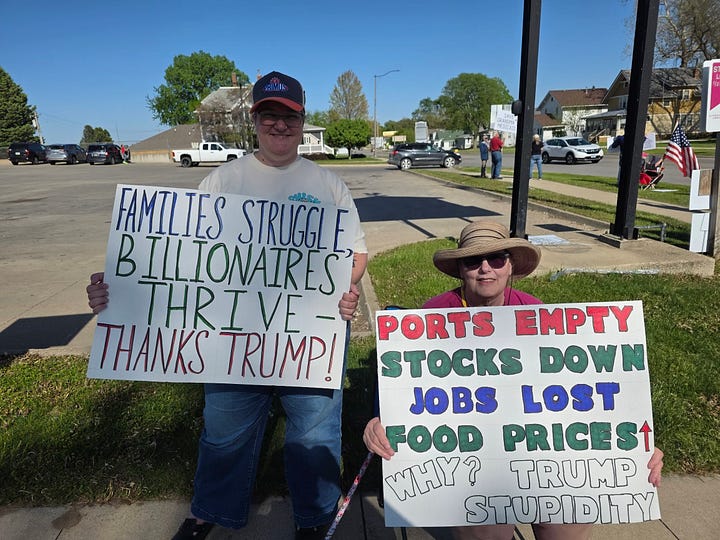 FAMILIES STRUGGLE,
BILLIONAIRES
THRIVE –
THANKS TRUMP!
PORTS EMPTY
STOCKS DOWN
JOBS LOST
FOOD PRICES↑
WHY? TRUMP
STUPIDITY